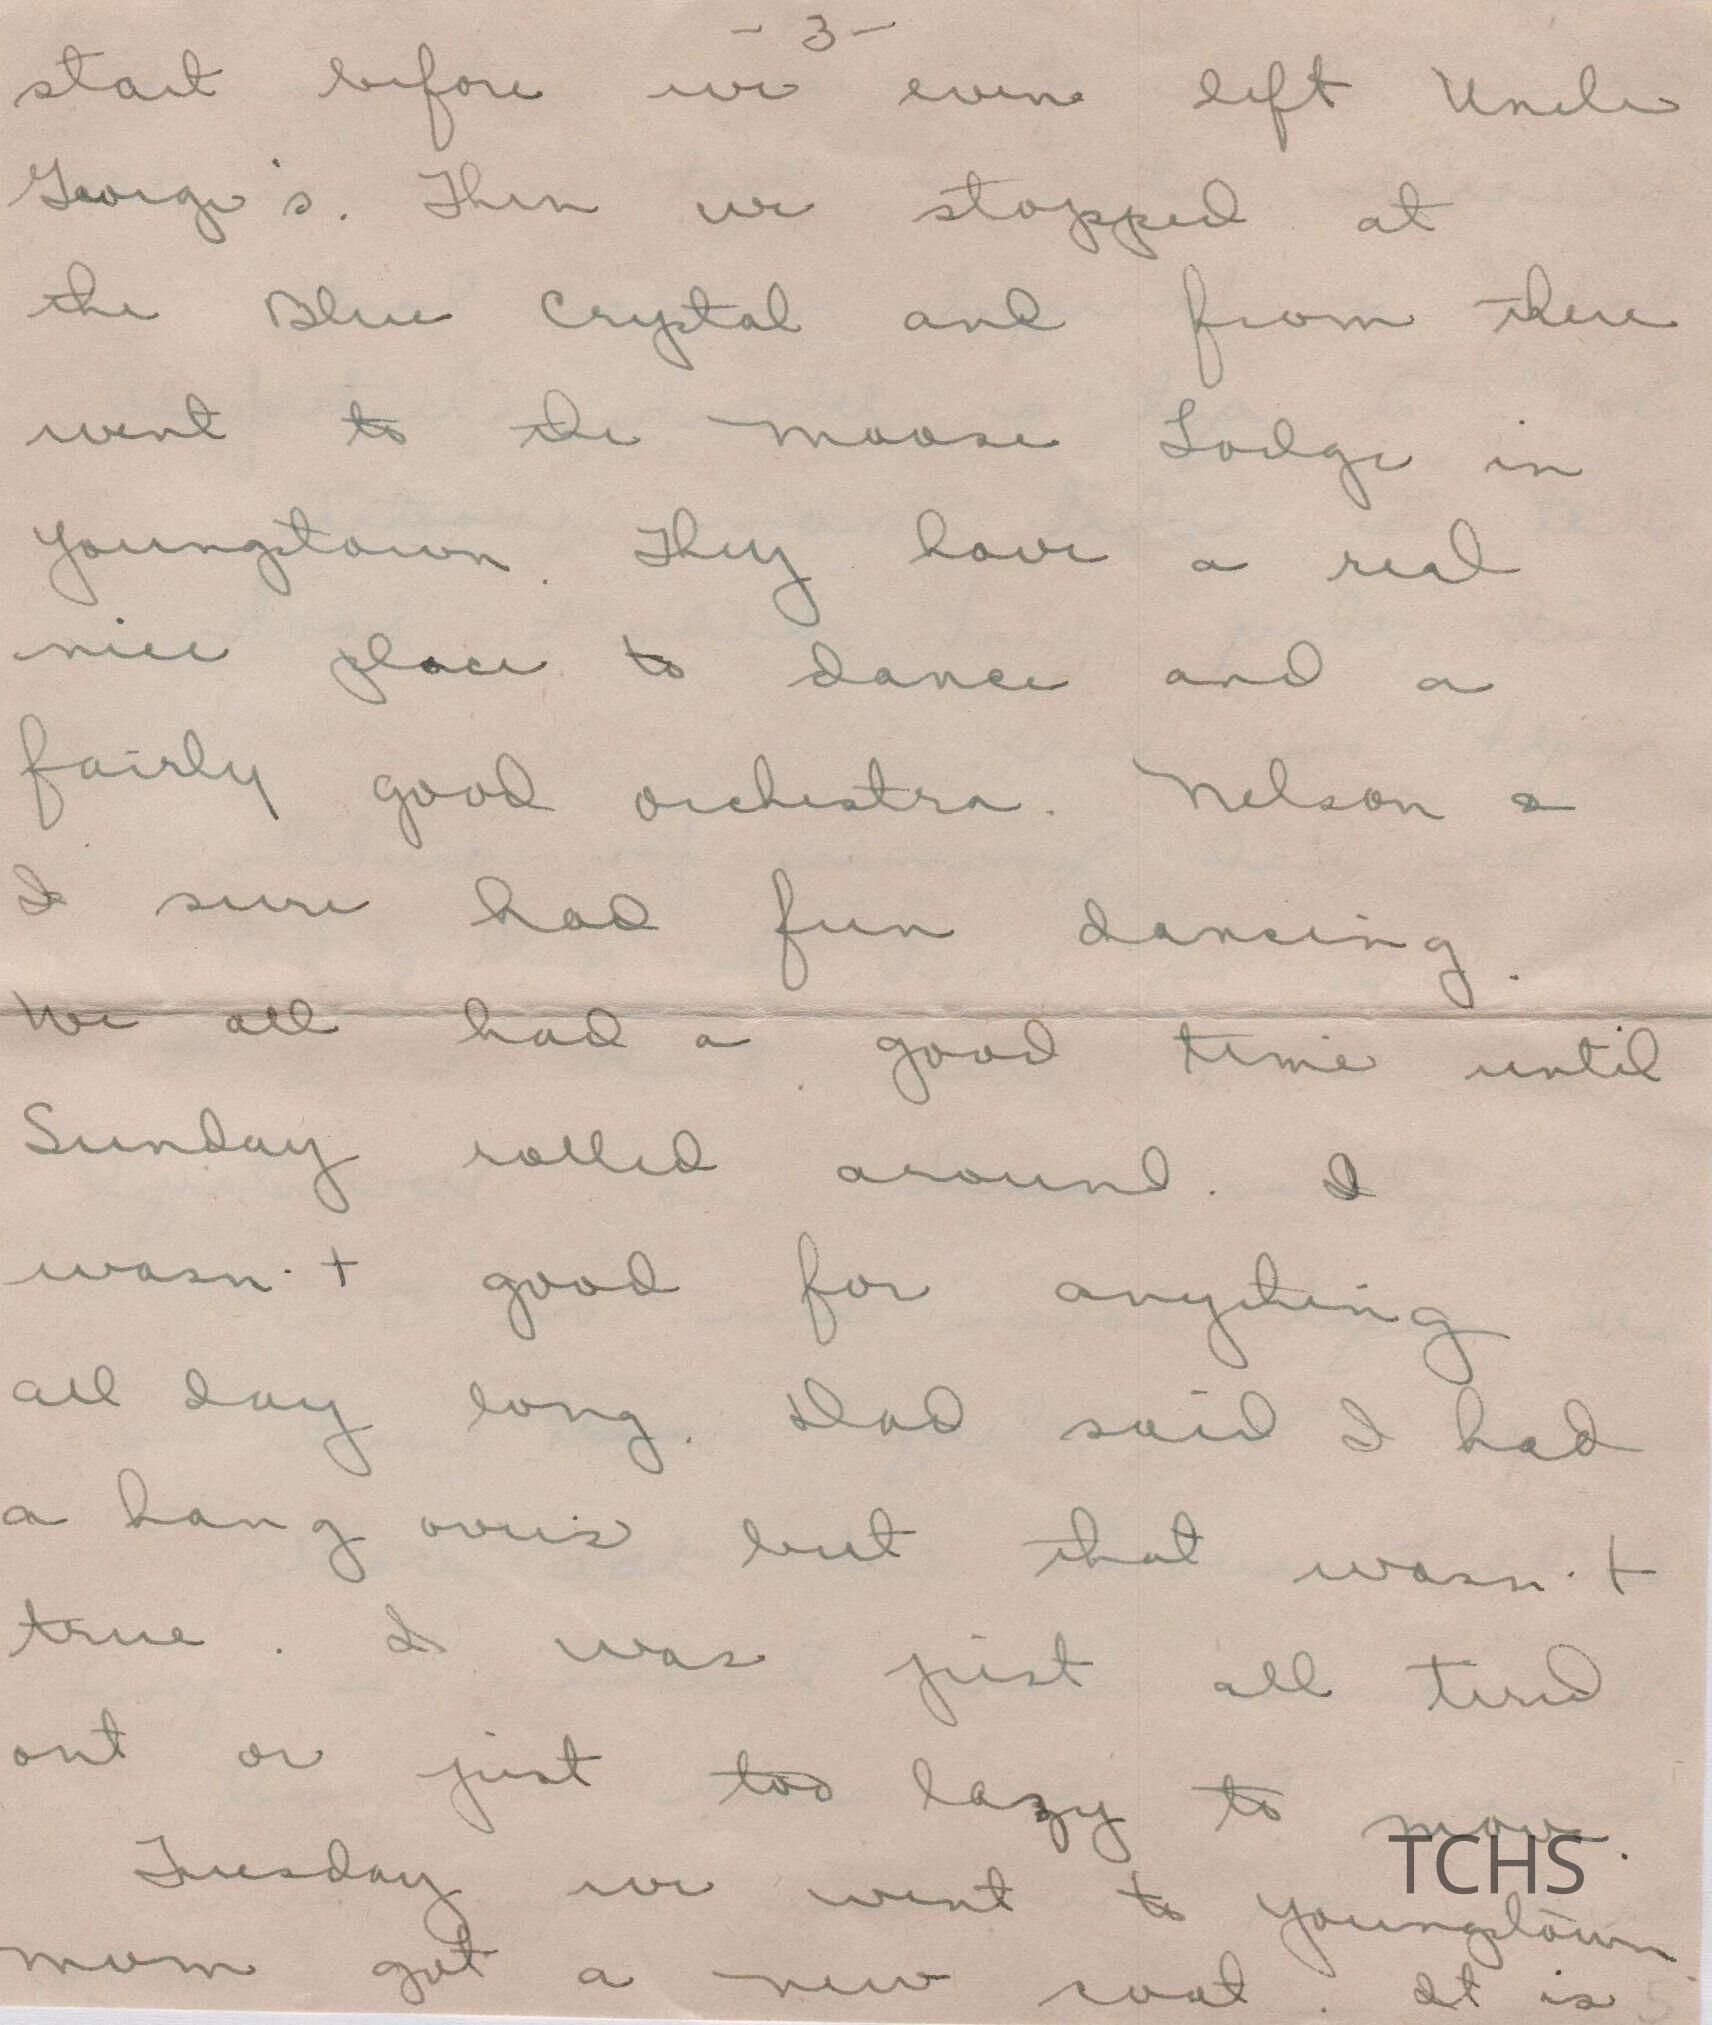 - 3 -
start before we even left Uncle
George's. Then we stopped at
the Blue Crystal and from there
went to the Moose Lodge in
Youngstown. They have a real
nice place to dance and a
fairly good orchestra. Nelson &
I sure had fun dancing.
We all had a good time until
Sunday rolled around. I
wasn't good for anything
all day long. Dad said I had
a hang over but that wasn't
true. I was just all tired
out or just too lazy to move.
TCHS
Tuesday we went to Youngstown
mom got a new coat. It is